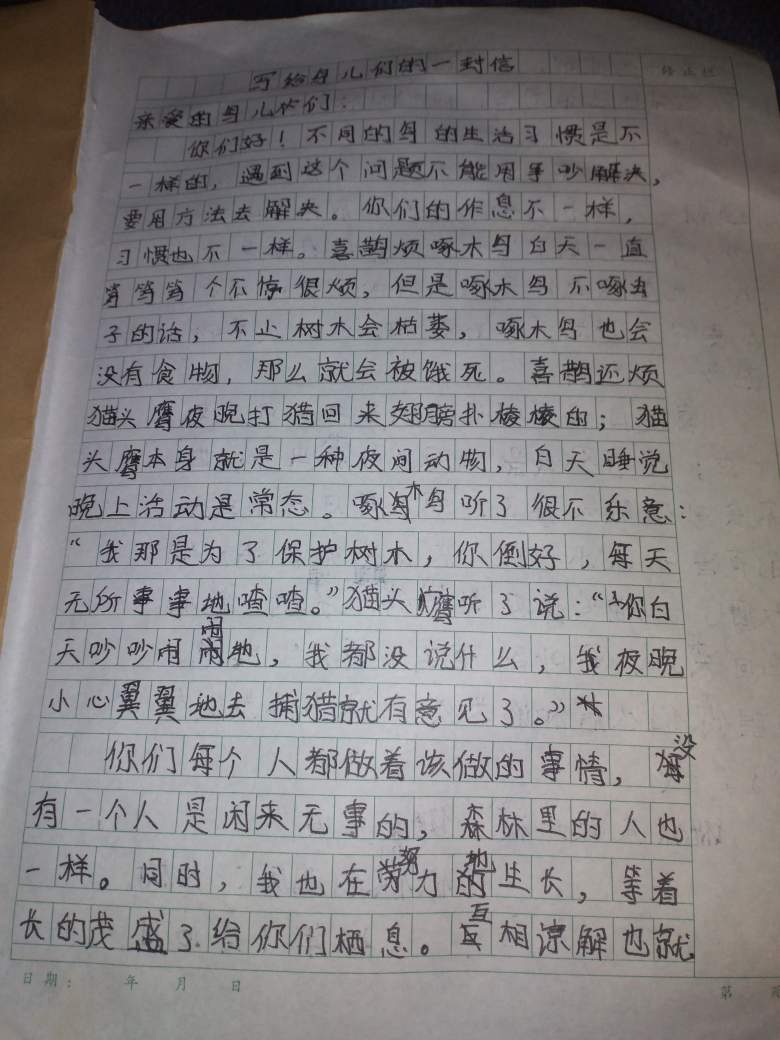 写给鸟儿们的一封信
亲爱的鸟儿们:
你们好!不同的鸟的生活习惯是不
一样的,遇到这个问题不能用争吵解决,
要用方法去解决。你们的作息不一样,
习惯也不一样。喜鹊烦啄木鸟白天一直
笃笃笃个不停很烦,但是啄木鸟不啄虫
子的话,不止树木会枯萎,啄木鸟也会
没有食物,那么就会被饿死。喜鹊还烦
猫头鹰夜晚打猎回来翅膀扑棱棱的;猫
头鹰本身就是一种夜间动物,白天睡觉
晚上活动是常态。啄木鸟听了很不乐意:
“我那是为了保护树木,你倒好,每天
无所事事地喳喳。”猫头鹰听了说:“你白
天吵吵闹闹地,我都没说什么,我夜晚
小心翼翼地去捕猎就有意见了。”
你们每个人都做着该做的事情,没
有一个人是闲来无事的,森林里的人也
一样。同时,我也在努力地生长,等着
长的茂盛了给你们栖息。互相谅解也就
日期: 年 月 日
第